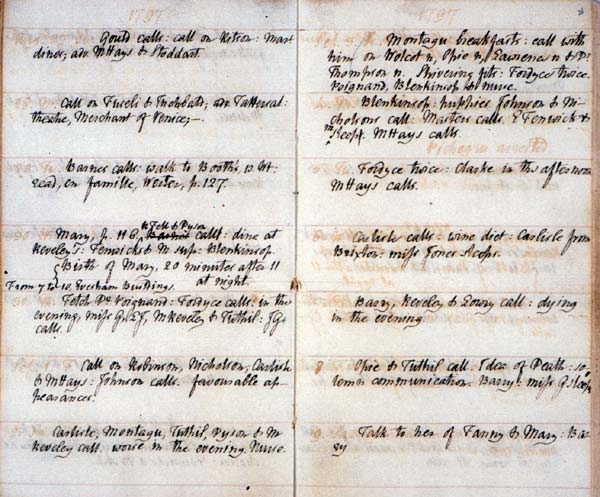 1797
Gould calls: call on Ritson: Mars
dines; adv. MHays & Stoddart.
Call on Fuseli & Inchbald; adv. Tattersal:
theatre, Merchant of Venice;—
Barnes calls: walk to Booth's, 10 br:
read, en famille, Werter, p. 127.
Fell & Dyson
Mary, p. 116. Barnes calls: dine at
Reveley's: Fenwicks & M. sup: Blenkinsop.
Birth of Mary, 20 minutes after 11
at night.
From 7 to 10, Evesham Buildings.
Fetch Dr. Poignard: Fordyce calls: in the
evening, miss G. & EJ, M Reveley & Tuthil:
calls.
Call on Robinson, Nicholson, Carlisle
& MHays: Johnson calls. favourable ap-
pearances.
Carlisle, Montagu, Tuthil, Dyson & M
Reveley call. worse in the evening. Nurse.
1797
Montagu breakfasts: call with
him on Wolcot n, Opie n, Lawrence n & Dr
Thompson n. Shivering fits: Fordyce twice.
Poignand, Blenkinsop & nurse.
Blenkinsop: puppies Johnson & Ni-
cholson call: Masters calls. E Fenwick &
M sleep. MHays calls.
Pichegru arrested
Fordyce twice: Clarke in the afternoon
MHays calls.
Carlisle calls: wine diet: Carlisle from
Brixton: miss Jones sleeps.
Barry, Reveley & Lowry call: dying
in the evening
8. Opie & Tuthil call. Idea of Death: so-
lemn communication. Barry: miss G. sleeps
9. Talk to her of Fanny & Mary: Bar-
ry